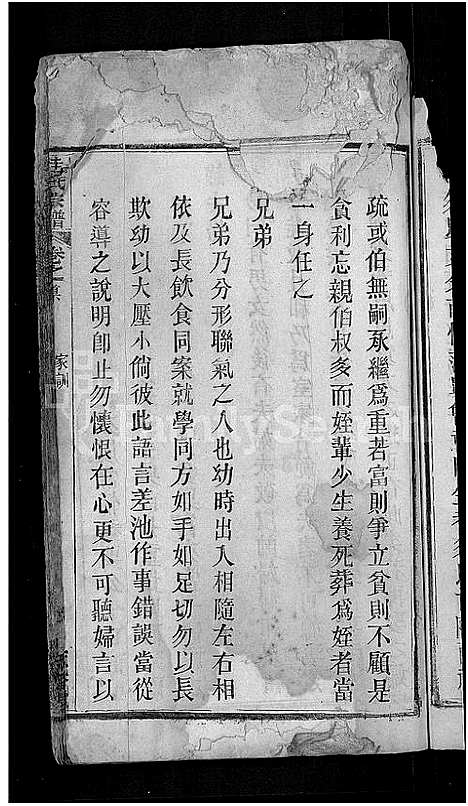 疏或伯無嗣承繼爲重若富則爭立貧則不顧是
貪利忘親伯叔多而姪輩少生養死葬爲姪者當
一身任之
兄弟
兄弟乃分形聯氣之人也幼時出入相隨左右相
依及長飲食同案就學同方如手如足切勿以長
欺幼以大壓小倘彼此語言差池作事錯誤當從
容導之說明卽止勿懷恨在心更不可聽婦言以
氏宗譜
卷之首
家訓
FamilySearch